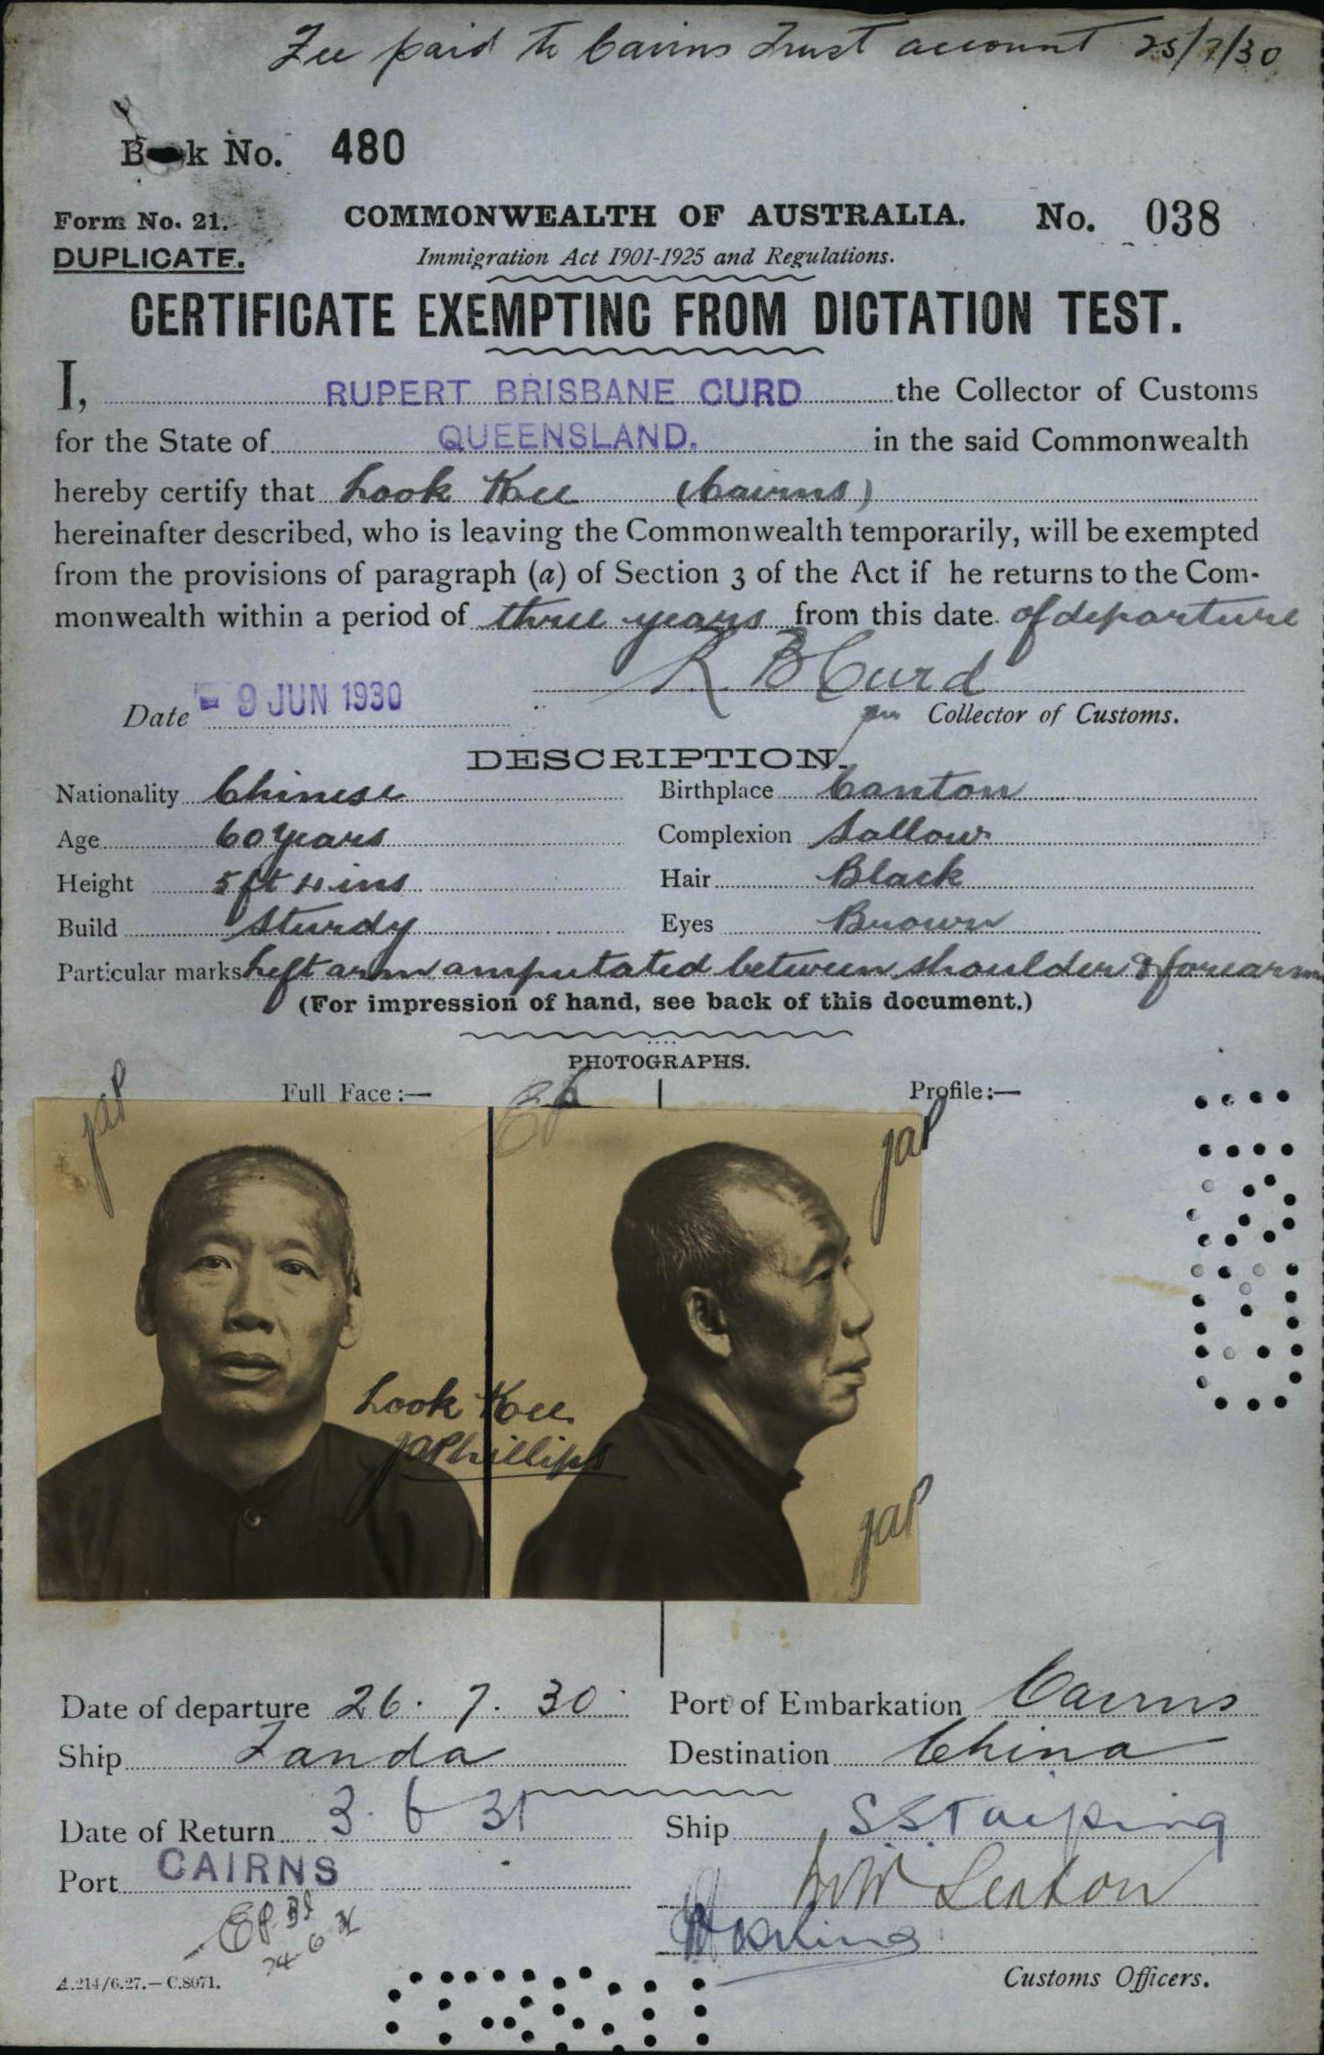 Fee paid to Cairns Trust account 25/7/30
Book No. 480
Form No. 21. COMMONWEALTH OF AUSTRALIA. No. 038
DUPLICATE. Immigration Act 1901-1925 and Regulations.
CERTIFICATE EXEMPTING FROM DICTATION TEST.
I, RUPERT BRISBANE CURD the Collector of Customs
for the State of QUEENSLAND. in the said Commonwealth
hereby certify that Look Kee (Cairns)
hereinafter described, who is leaving the Commonwealth temporarily, will be exempted
from the provisions of paragraph (a) of Section 3 of the Act if he returns to the Com-
monwealth within a period of three years from this date of departure
R B Curd
Date - 9 JUN 1930 Collector of Customs.
DESCRIPTION.
Nationality Chinese Birthplace Canton
Age 60 years Complexion Sallow
Height 5 ft ins Hair Black
Build Sturdy Eyes Brown
Particular marks Left arm amputated between shoulder & forearm
(For impression of hand, see back of this document.)
PHOTOGRAPHS.
Full Face:— Profile:—
JAP
JAP
Look Kee
JAPhillips
JAP
Date of departure 26. 7. 30 Port of Embarkation Cairns
Ship Tanda Destination China
Date of Return 3. 6 31 Ship SS Taiping
Port CAIRNS
24 6 31
A.214/6.27.—C.8071. Customs Officers.